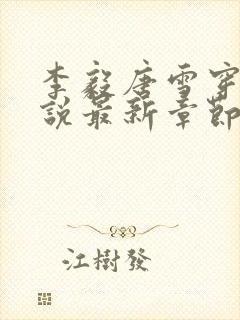 李毅唐雪穿
說最新章節
江樹發